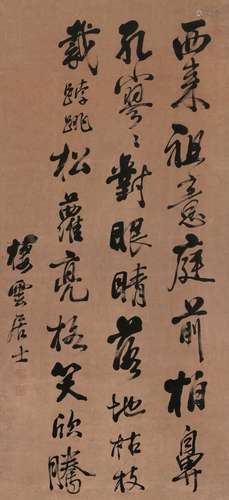 西來祖意庭前柏鼻
孔寥〻對眼睛落地枯枝
載𨁝跳松蘿亮格笑欣騰
棲雲居士